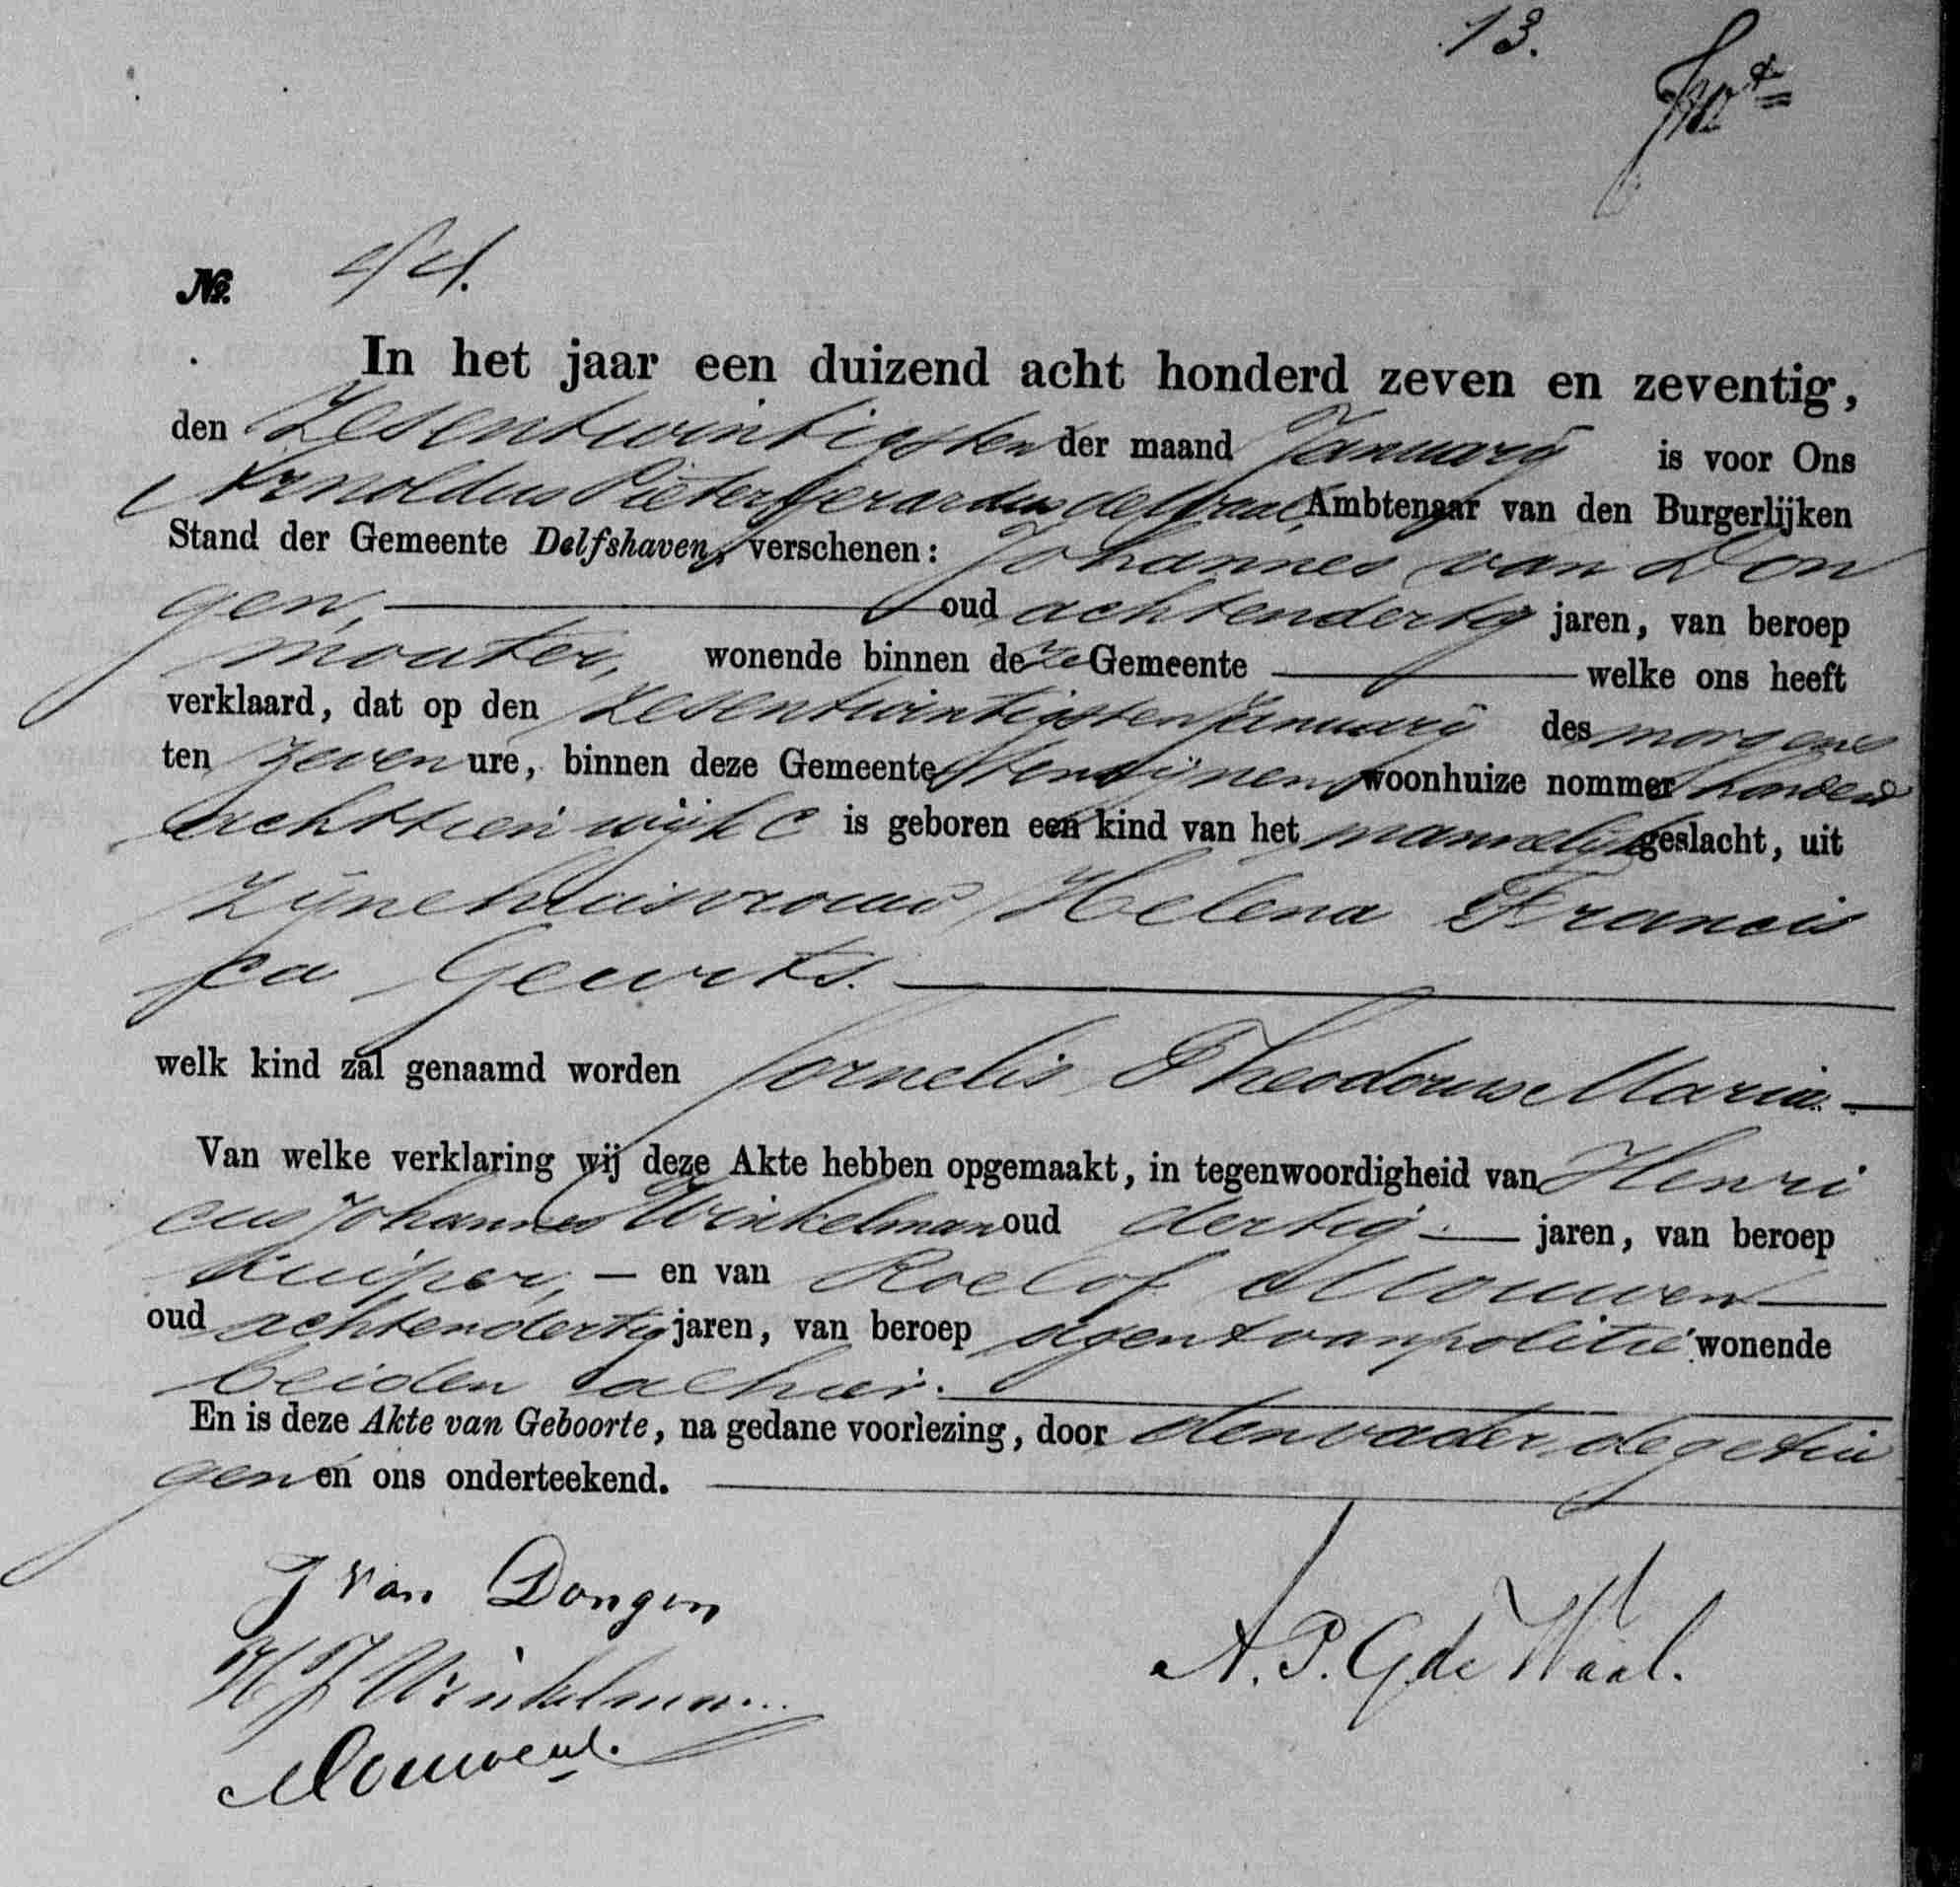 13.
No. 44.
In het jaar een duizend acht honderd zeven en zeventig,
den Zesentwintigsten der maand January is voor Ons
Arnoldus Pieter Gerardus de Waal, Ambtenaar van den Burgerlijken
Stand der Gemeente Delfshaven, verschenen: Johannes van Don
gen, oud achtendertig jaren, van beroep
mouter, wonende binnen deze Gemeente welke ons heeft
verklaard, dat op den zesentwintigsten January des morgens
ten zeven ure, binnen deze Gemeente ten zijnen woonhuize nommer honderd
achttien wijk C is geboren een kind van het mannelijk geslacht, uit
zijne huisvrouw Helena Francis
ca Geurts.
welk kind zal genaamd worden Cornelis Theodorus Maria.
Van welke verklaring wij deze Akte hebben opgemaakt, in tegenwoordigheid van Henri
cus Johannes Winkelman oud dertig jaren, van beroep
kuiper, en van Roelof Mouwen
oud achtendertig jaren, van beroep agent van politie wonende
beiden alhier.
En is deze Akte van Geboorte, na gedane voorlezing, door den vader, de getui
gen en ons onderteekend.
J van Dongen
H J Winkelman
A. P. G de Waal.
Mouwen.